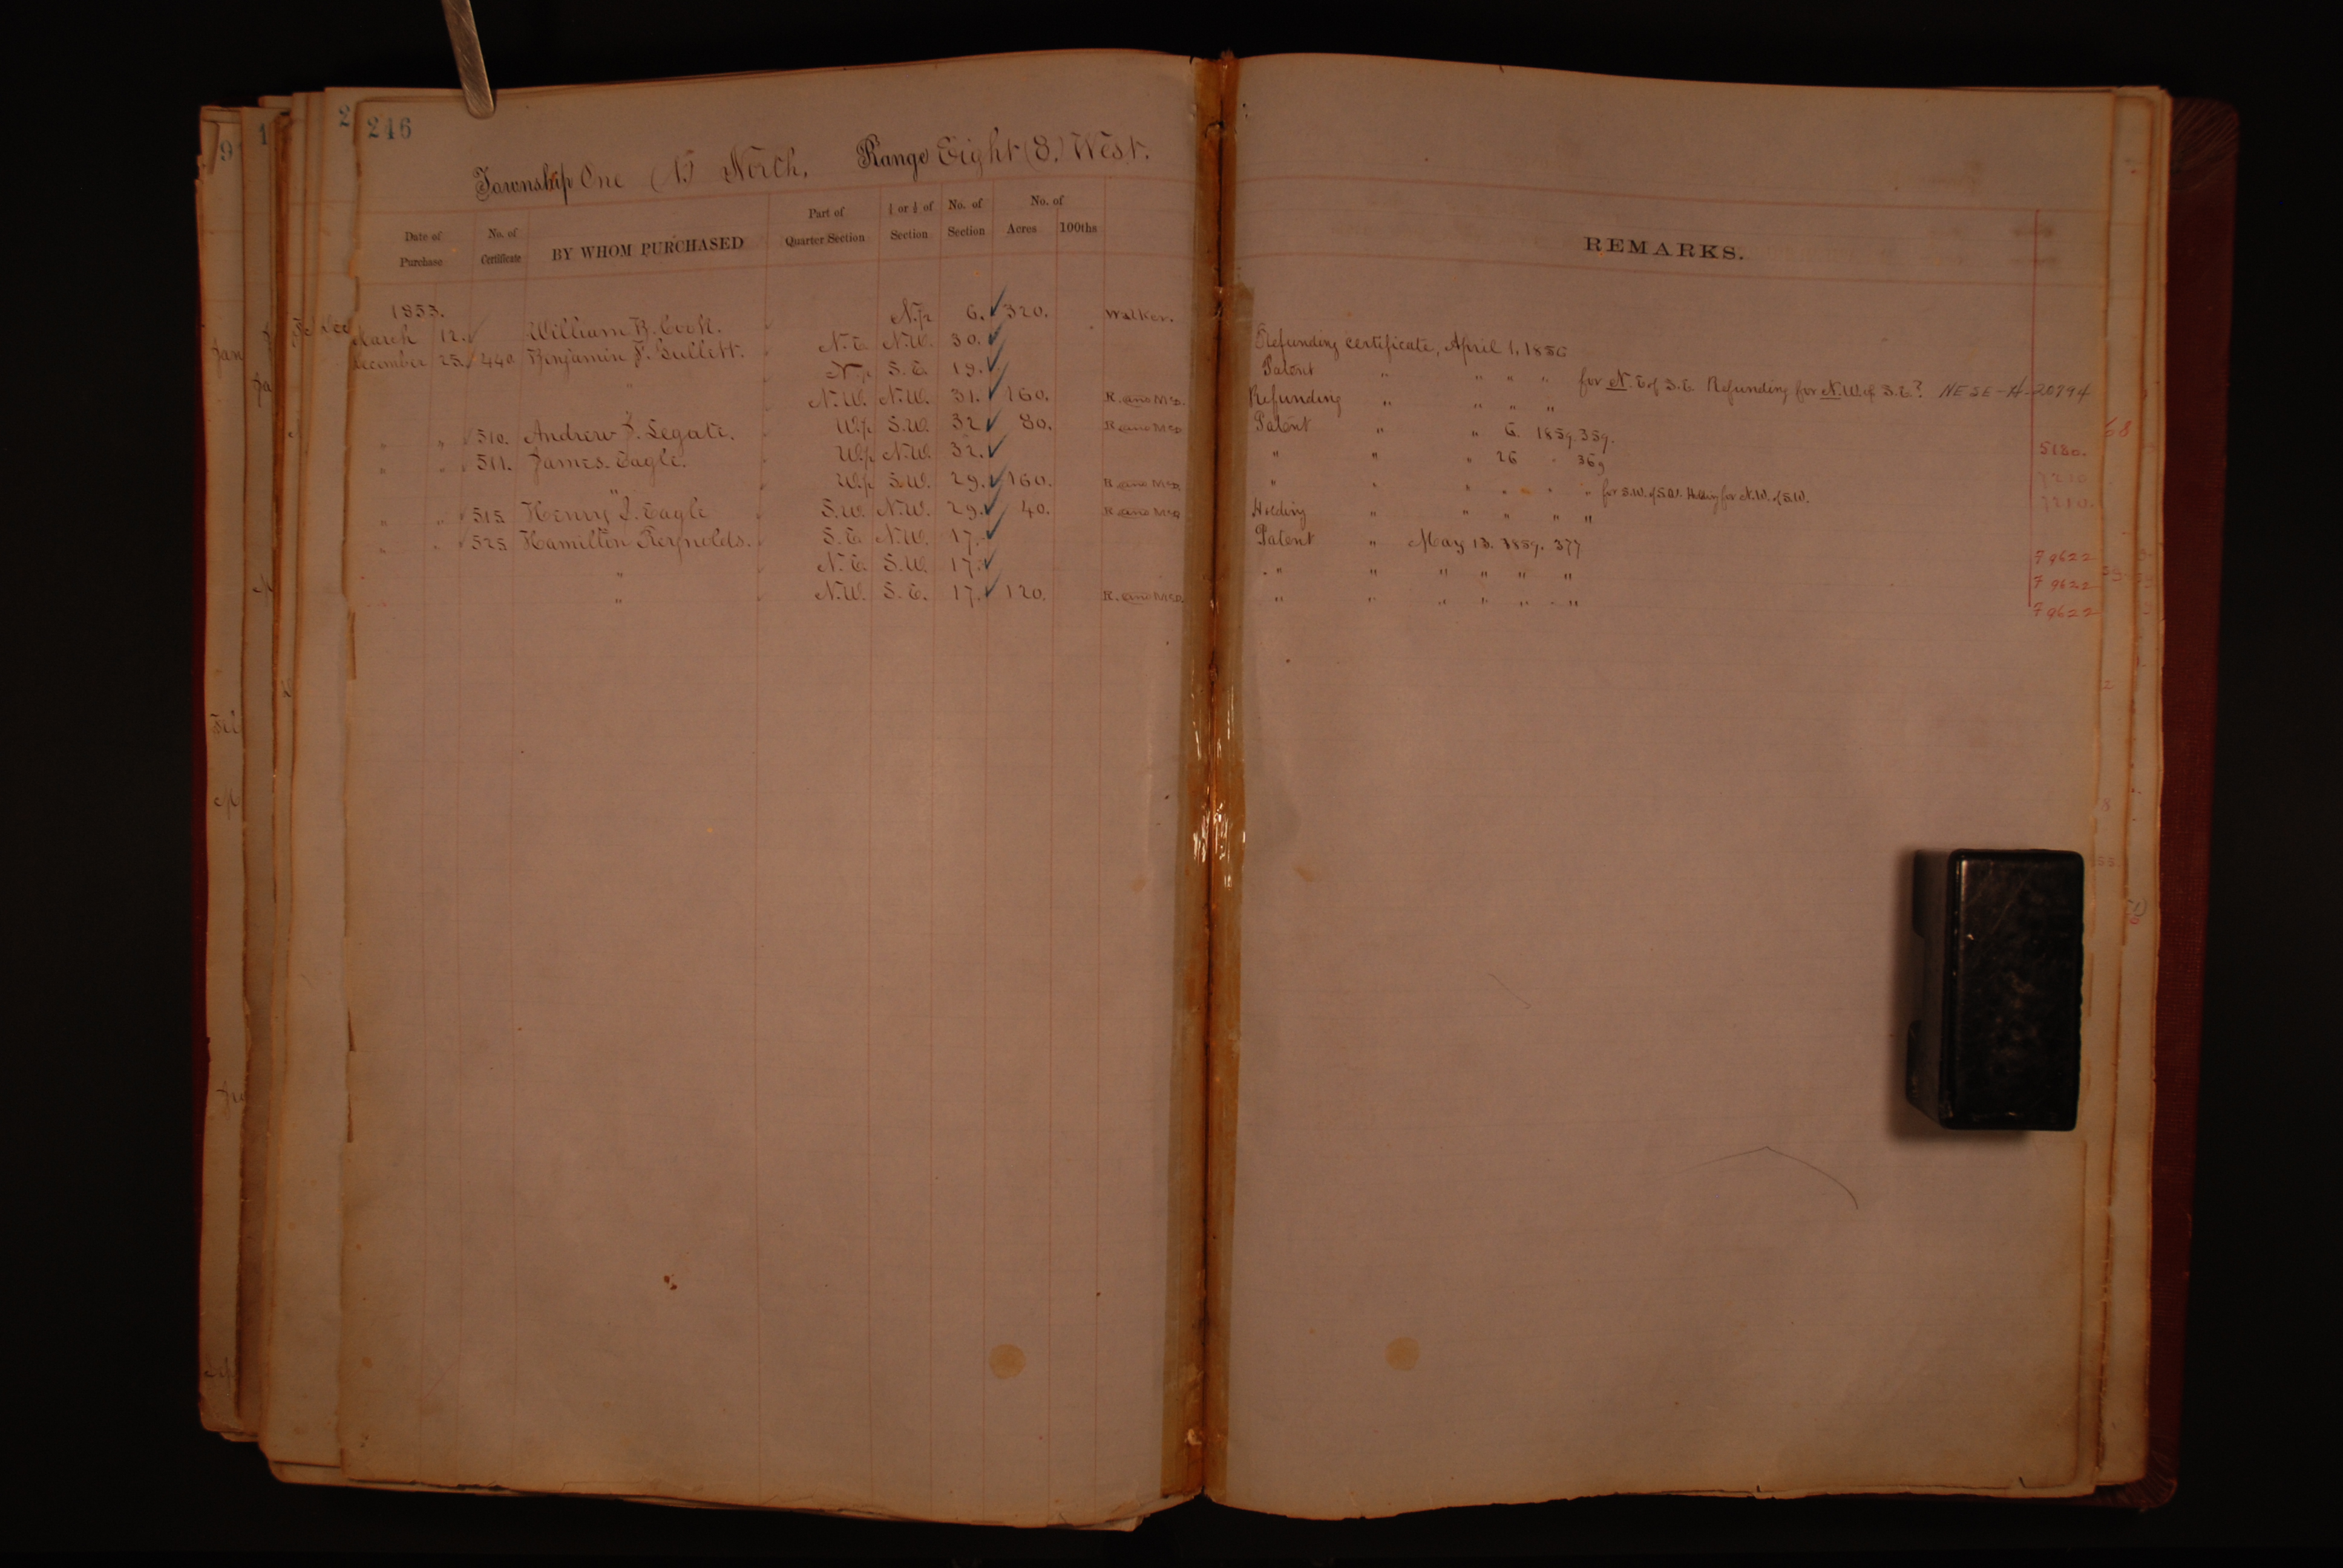 246
Township One (1.) North, Range Eight (8.) West.
Date of Purchase No. of Certificate BY WHOM PURCHASED Part of Quarter Section ½ or ¼ of Section No. of Section No. of Acres 100ths
REMARKS.
1853.
March 12. William B. Cook. N.p 6. 320. Walker. Refunding certificate, April 1, 1856
December 25. 440 Benjamin F. Gullett. N.E. N.W. 30. Patent " " " "
" N.p S.E. 19. Refunding " " " " for N.E of S.E. Refunding for N.W. of S.E.? NE SE-A-20794
N.W. N.W. 31. 160. R. and McD. Patent " " 6. 1859. 359.
" " 510. Andrew J. Legate. W.p S.W. 32 80. R and McD " " " 26 " 369 5180.
" " 511. James. Eagle. W.p N.W. 32. 7210
" W.p S.W. 29. 160. R and McD " " " " " " for S.W. of S.W. Holding for N.W. of S.W. 7210.
" " 515 Henry J. Eagle S.W. N.W. 29. 40. R and McD Holding " " " " "
" " 525 Hamilton Reynolds. S.E. N.W. 17. Patent " May 13. 1859. 377 79622
" N.E. S.W. 17. " " " " " " 79622
" N.W. S.E. 17. 120. R. and McD. " " " " " " 79622